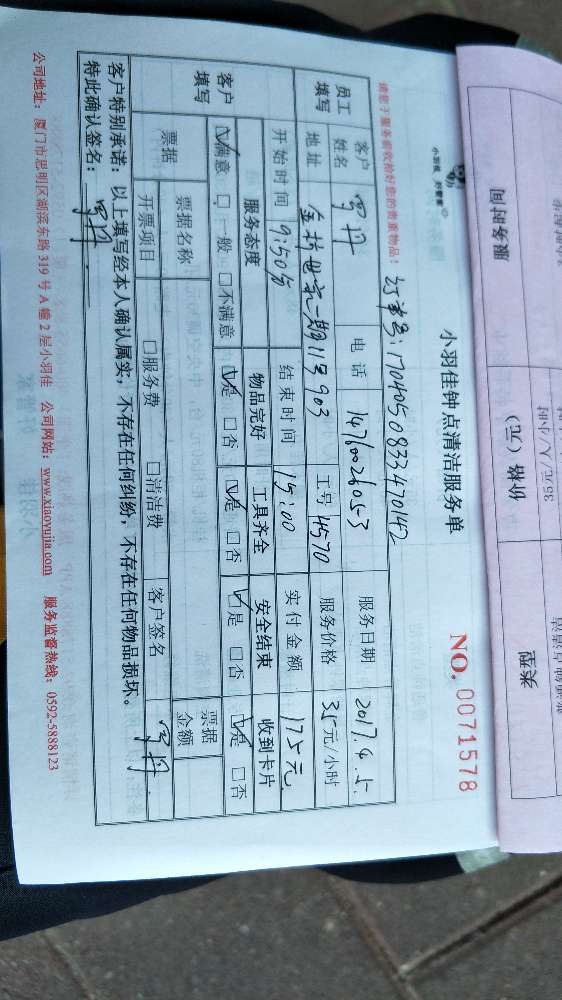 小羽佳钟点清洁服务单
NO. 00711578
小羽佳 好管家
请您于服务前收拾好您的贵重物品!
订单号:170405083347042
员工填写 客户姓名 电话 14760026053 服务日期 2017.4.5
地址 工号 H570 服务价格 35元/小时
开始时间 9:50分 结束时间 15:00 实付金额 175元
客户填写 服务态度 物品完好 工具齐全 安全结束 收到卡片
☑满意 □一般 □不满意 ☑是 □否 ☑是 □否 ☑是 □否 ☑是 □否
票据 票据名称 票据金额
开票项目 □服务费 □清洁费 客户签名
客户特别承诺:以上填写经本人确认属实,不存在任何纠纷,不存在任何物品损坏。
特此确认签名:
公司地址:厦门市思明区湖滨东路 319 号 A 幢 2 层小羽佳 公司网站:www.xiaoyujia.com 服务监督热线:0592-5888123
服务时间
价格(元)
35元/人/小时